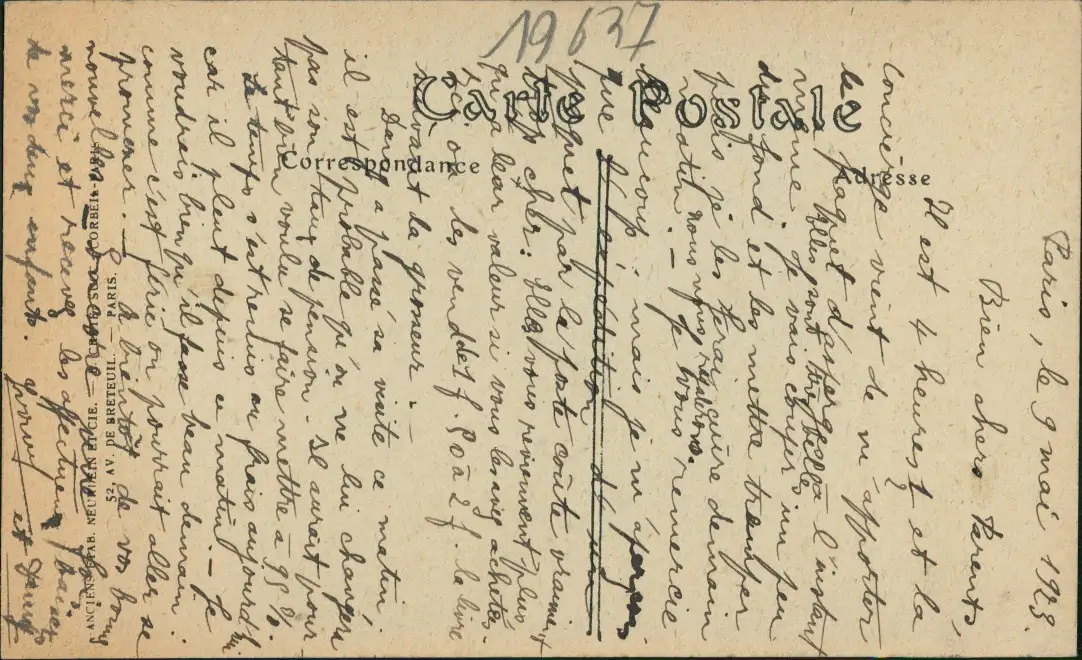 19637
Carte Postale
Correspondance
Adresse
Paris, le 9 mai 1928.
Bien chers Parents,
Il est 4 heures ½ et la
concierge vient de m'apporter
le paquet d'asperges à l'instant
même. Elles sont très belles
Je vais couper un peu
de fond et les mettre tremper
puis je les ferai cuire demain
matin. nous nous régalerons.
— Je vous remercie
beaucoup mais je m'aperçois
que l'expédition d'un
paquet par la poste coûte vraiment
trop cher: elles vous reviennent plus
qu'à leur valeur si vous les avez achetées.
Ici on les vend de 1 f. 50 à 2 f. la livre
suivant la grosseur. —
a passé sa visite ce matin.
il est probable qu'on ne lui changera
pas son taux de pension. Il aurait pour
tant bien voulu se faire mettre à 95 %.
Le temps s'est rectius au frais aujourd'hui
car il pleut depuis ce matin. — Je
voudrais bien qu'il fasse beau demain:
comme c'est férié on pourrait aller se
promener. — à bientôt de vos bonnes
nouvelles
merci et recevez les affectueux baisers
de vos deux enfants.
ANCIENS ETAB. NEURDEIN ET CIE. — CRÉTÉ SUCC. CORBEIL-PARIS
52, AV. DE BRETEUIL — PARIS.